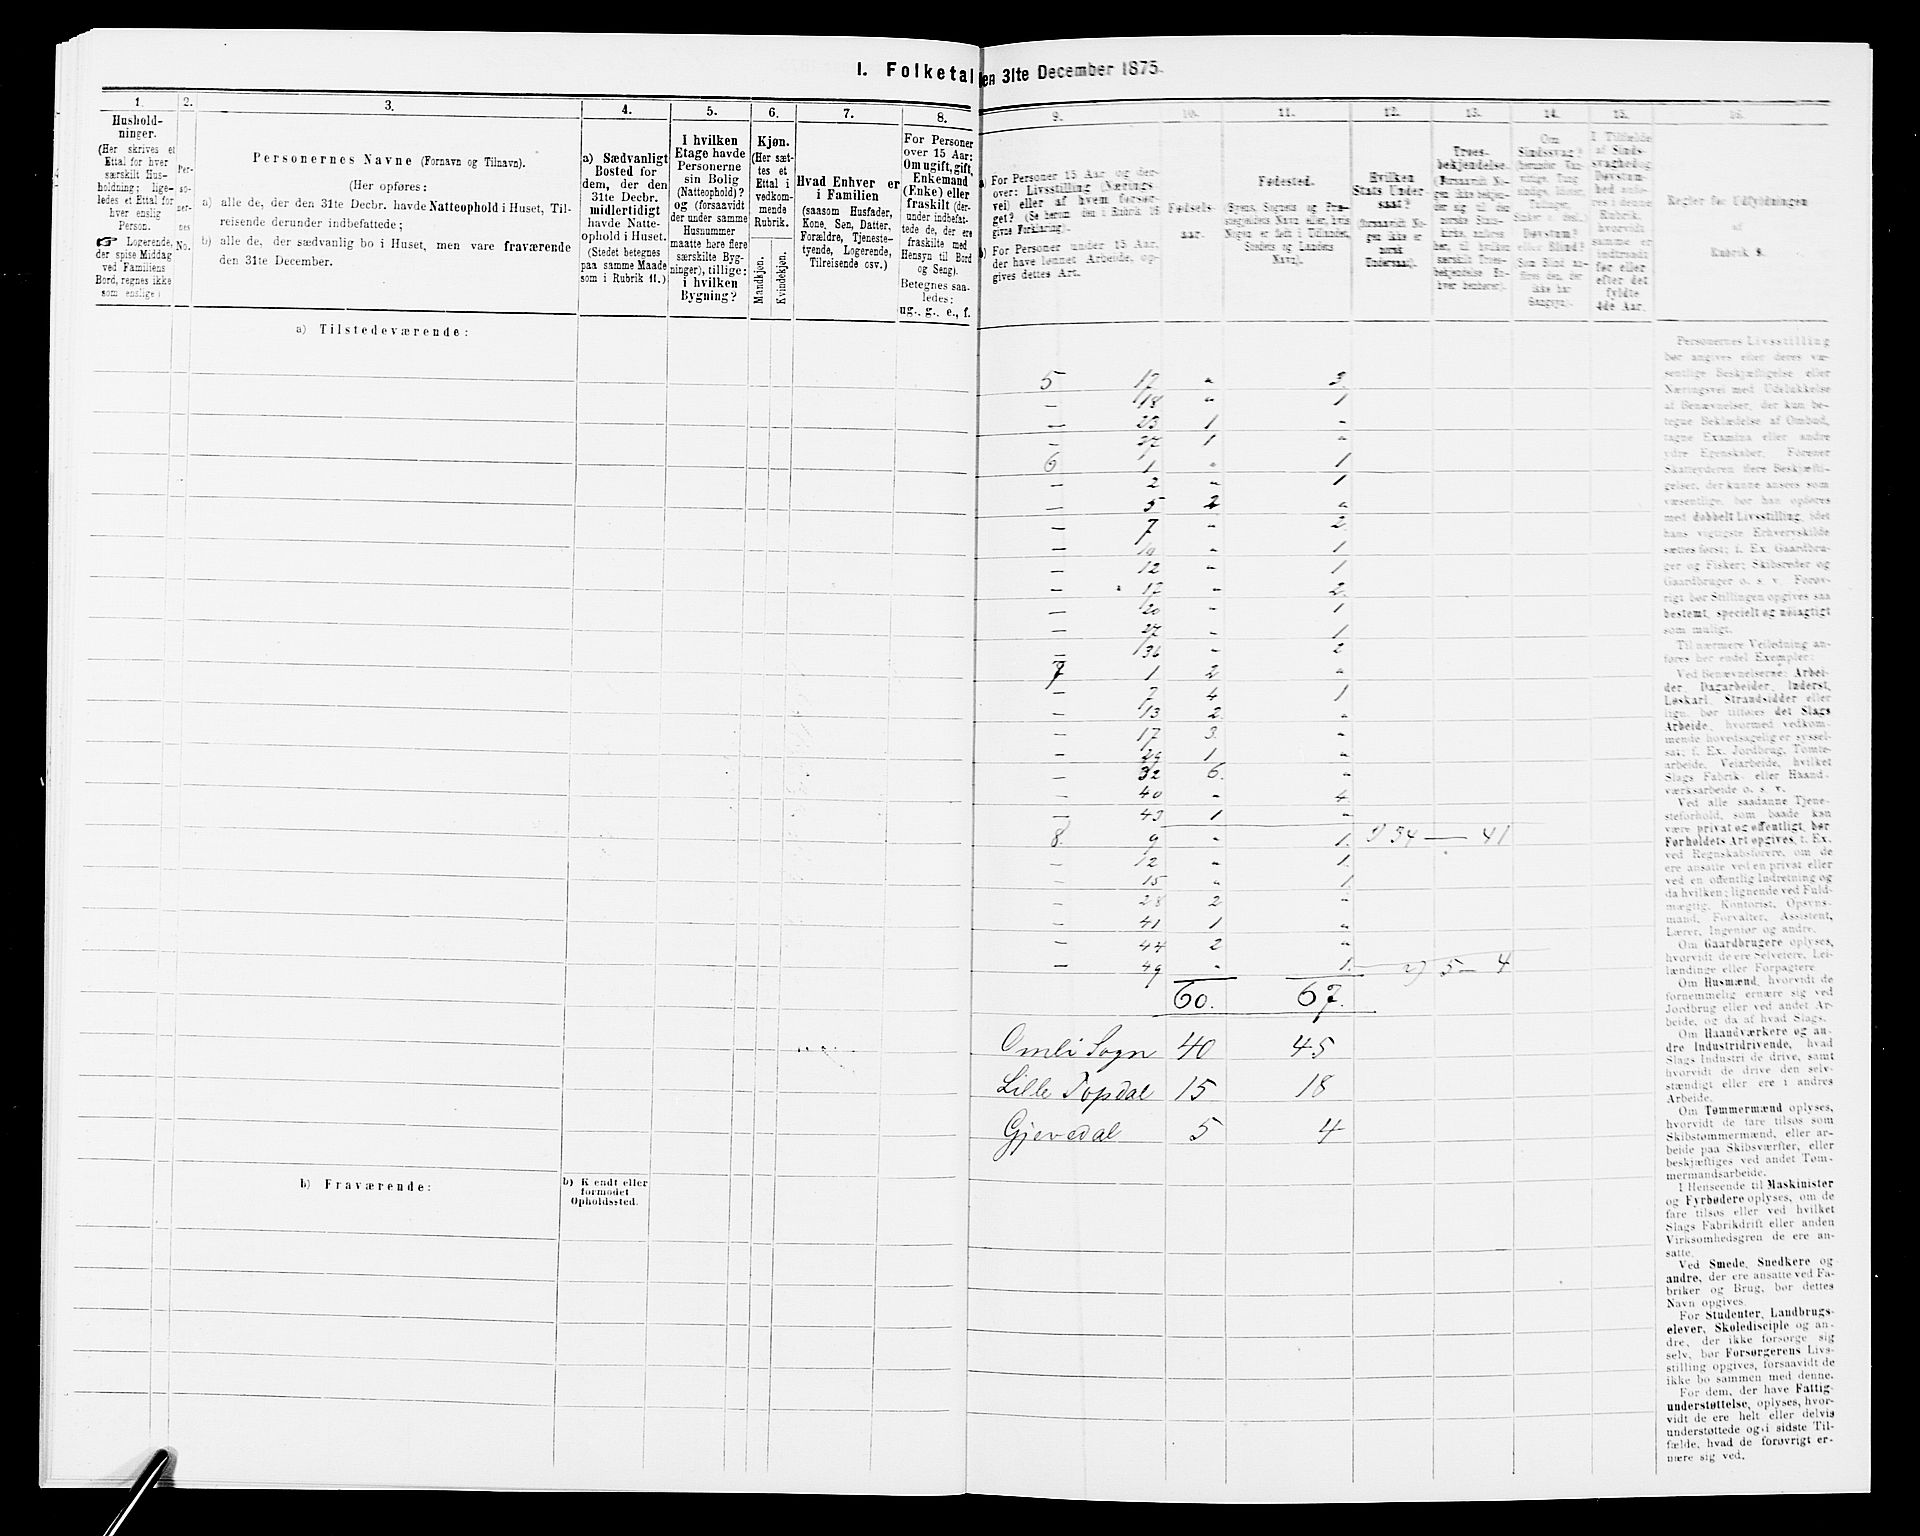 I. Folketal den 31te December 1875.
1.
Hushold-
ninger.
(Her skrives et
Ettal for hver
særskilt Hus-
holdning; lige-
ledes et Ettal for
hver enslig
Person.
☞ Logerende,
der spise Middag
ved Familiens
Bord, regnes ikke
som enslige.)
2.
Per-
so-
ner-
nes
No.
3.
Personernes Navne (Fornavn og Tilnavn).
(Her opføres:
a) alle de, der den 31te Decbr. havde Natteophold i Huset, Til-
reisende derunder indbefattede;
b) alle de, der sædvanlig bo i Huset, men vare fraværende
den 31te December.
4.
a) Sædvanligt
Bosted for
dem, der den
31te Decbr.
midlertidigt
havde Natte-
ophold i Huset.
(Stedet betegnes
paa samme Maade
som i Rubrik 11.)
5.
I hvilken
Etage havde
Personerne
sin Bolig
(Natteophold)?
og (forsaavidt
der under samme
Husnummer
maatte høre flere
særskilte Byg-
ninger), tillige:
i hvilken
Bygning?
6.
Kjøn.
(Her sæt-
tes et
Ettal i
vedkom-
mende
Rubrik.
Mandkjøn.
Kvindekjøn.
7.
Hvad Enhver er
i Familien
(saasom Husfader,
Kone, Søn, Datter,
Forældre, Tjeneste-
tyende, Logerende,
Tilreisende osv.)
8.
For Personer
over 15 Aar:
Om ugift, gift,
Enkemand
(Enke) eller
fraskilt (der-
under indbefat-
tede de, der ere
fraskilte med
Hensyn til Bord
og Seng).
Betegnes saa-
ledes:
ug., g., e., f.
9.
a) For Personer 15 Aar og der-
over: Livsstilling (Nærings-
vei) eller af hvem forsør-
get? (Se herom den i Rubrik 16
givne Forklaring).
b) For Personer under 15 Aar,
der have lønnet Arbeide, op-
gives dettes Art.
10.
Fødsels-
aar.
11.
Fødested.
(Byens, Sognets og Præ-
stegjeldets Navn eller, hvis
Nogen er født i Udlandet,
Stedets og Landets
Navn).
12.
Hvilken
Stats Under-
saat?
(forsaavidt No-
gen ikke er
norsk
Undersaat).
13.
Troes-
bekjendelse.
(Forsaavidt No-
gen ikke bekjen-
der sig til den
norske Stats-
kirke, anføres
her, til hvilken
særskilt Troes-
bekjendelse En-
hver henhører).
14.
Om
Sindssvag?
(herunder Van-
vittige, Tung-
sindige, Idioter,
Tullinger,
Sinker o. desl.)
Døvstum?
eller Blind?
Som Blind an-
føres den, der
ikke har
Gangsyn).
15.
I Tilfælde
af Sinds-
svaghed og
Døvstum-
hed anfø-
res i denne
Rubrik,
hvorvidt
samme er
indtraadt
før eller
efter det
fyldte
4de Aar.
16.
Regler for Udfyldningen
af
Rubrik 9.
a) Tilstedeværende:
5 17 " 3.
— 18 " 1
— 23 1 "
— 27 1 "
6 1 " 1
— 2 " 1
— 5 2 "
— 7 " 2.
— 10 " 1
— 12 " 1
— 17 " 2.
— 20 " 1
— 27 " 1
— 36 " 2
7 1 2 "
— 7 4 1
— 13 2 "
— 17 3. "
— 29 1 "
— 32 6. "
— 40 " 4.
— 43 1 "
8. 9 " 1. 1) 34 — 41
— 12 " 1.
— 15 " 1.
— 28 2 "
— 41 1 "
— 44 2 "
— 49 " 1. 2) 5 — 4
60. 67.
Omli Sogn 40 45
Lille Topdal 15 18
Gjevedal 5 4
b) Fraværende:
b) Kjendt eller
formodet
Opholdssted.
Personernes Livsstilling
bør angives efter deres væ-
sentlige Beskjæftigelse eller
Næringsvei med Udelukkelse
af Benævnelser, der kun be-
tegne Beklædelse af Ombud,
tagne Examina eller andre
ydre Egenskaber. Forener
Skatteyderen flere Beskjæfti-
gelser, der kunne ansees som
væsentlige, bør han opføres
med dobbelt Livsstilling, idet
hans vigtigste Erhvervskilde
sættes først; f. Ex. Gaardbru-
ger og Fisker; Skibsreder og
Gaardbruger o. s. v. Forøv-
rigt bør Stillingen opgives saa
bestemt, specielt og nøiagtigt
som muligt.
Til nærmere Veiledning an-
føres her endel Exempler:
Ved Benævnelserne: Arbei-
der, Dagarbeider, Inderst,
Løskarl, Strandsidder eller
lign. bør tilføies det Slags
Arbeide, hvormed vedkom-
mende hovedsagelig er syssel-
sat; f. Ex. Jordbrug, Tomte-
arbeide, Veiarbeide, hvilket
Slags Fabrik- eller Haand-
værksarbeide o. s. v.
Ved alle saadanne Tjene-
steforhold, som baade kan
være privat og offentligt, bør
Forholdets Art opgives, f. Ex.
ved Regnskabsførere, om de
ere ansatte ved en privat eller
ved en offentlig Indretning og
da hvilken; lignende ved Fuld-
mægtig, Kontorist, Opsyns-
mand, Forvalter, Assistent,
Lærer, Ingeniør og andre.
Om Gaardbrugere oplyses,
hvorvidt de ere Selveiere, Lei-
lændinge eller Forpagtere.
Om Husmænd, hvorvidt de
fornemmelig ernære sig ved
Jordbrug eller ved andet Ar-
beide, og da af hvad Slags.
Om Haandværkere og an-
dre Industridrivende, hvad
Slags Industri de drive, samt
hvorvidt de drive den selv-
stændigt eller ere i andres
Arbeide.
Om Tømmermænd oplyses,
hvorvidt de fare tilsøs som
Skibstømmermænd, eller ar-
beide paa Skibsværfter, eller
beskjæftiges ved andet Tøm-
mermandsarbeide.
I Henseende til Maskinister
og Fyrbødere oplyses, om de
fare tilsøs eller ved hvilket
Slags Fabrikdrift eller anden
Virksomhedsgren de ere an-
satte.
Ved Smede, Snedkere og
andre, der ere ansatte ved Fa-
briker og Brug, bør dettes
Navn opgives.
For Studenter, Landbrugs-
elever, Skoledisciple og an-
dre, der ikke forsørge sig
selv, bør Forsørgerens Livs-
stilling opgives, forsaavidt de
ikke bo sammen med denne.
For dem, der have Fattig-
understøttelse, oplyses, hvor-
vidt de ere helt eller delvis
understøttede og i sidste Til-
fælde, hvad de forøvrigt er-
nære sig ved.